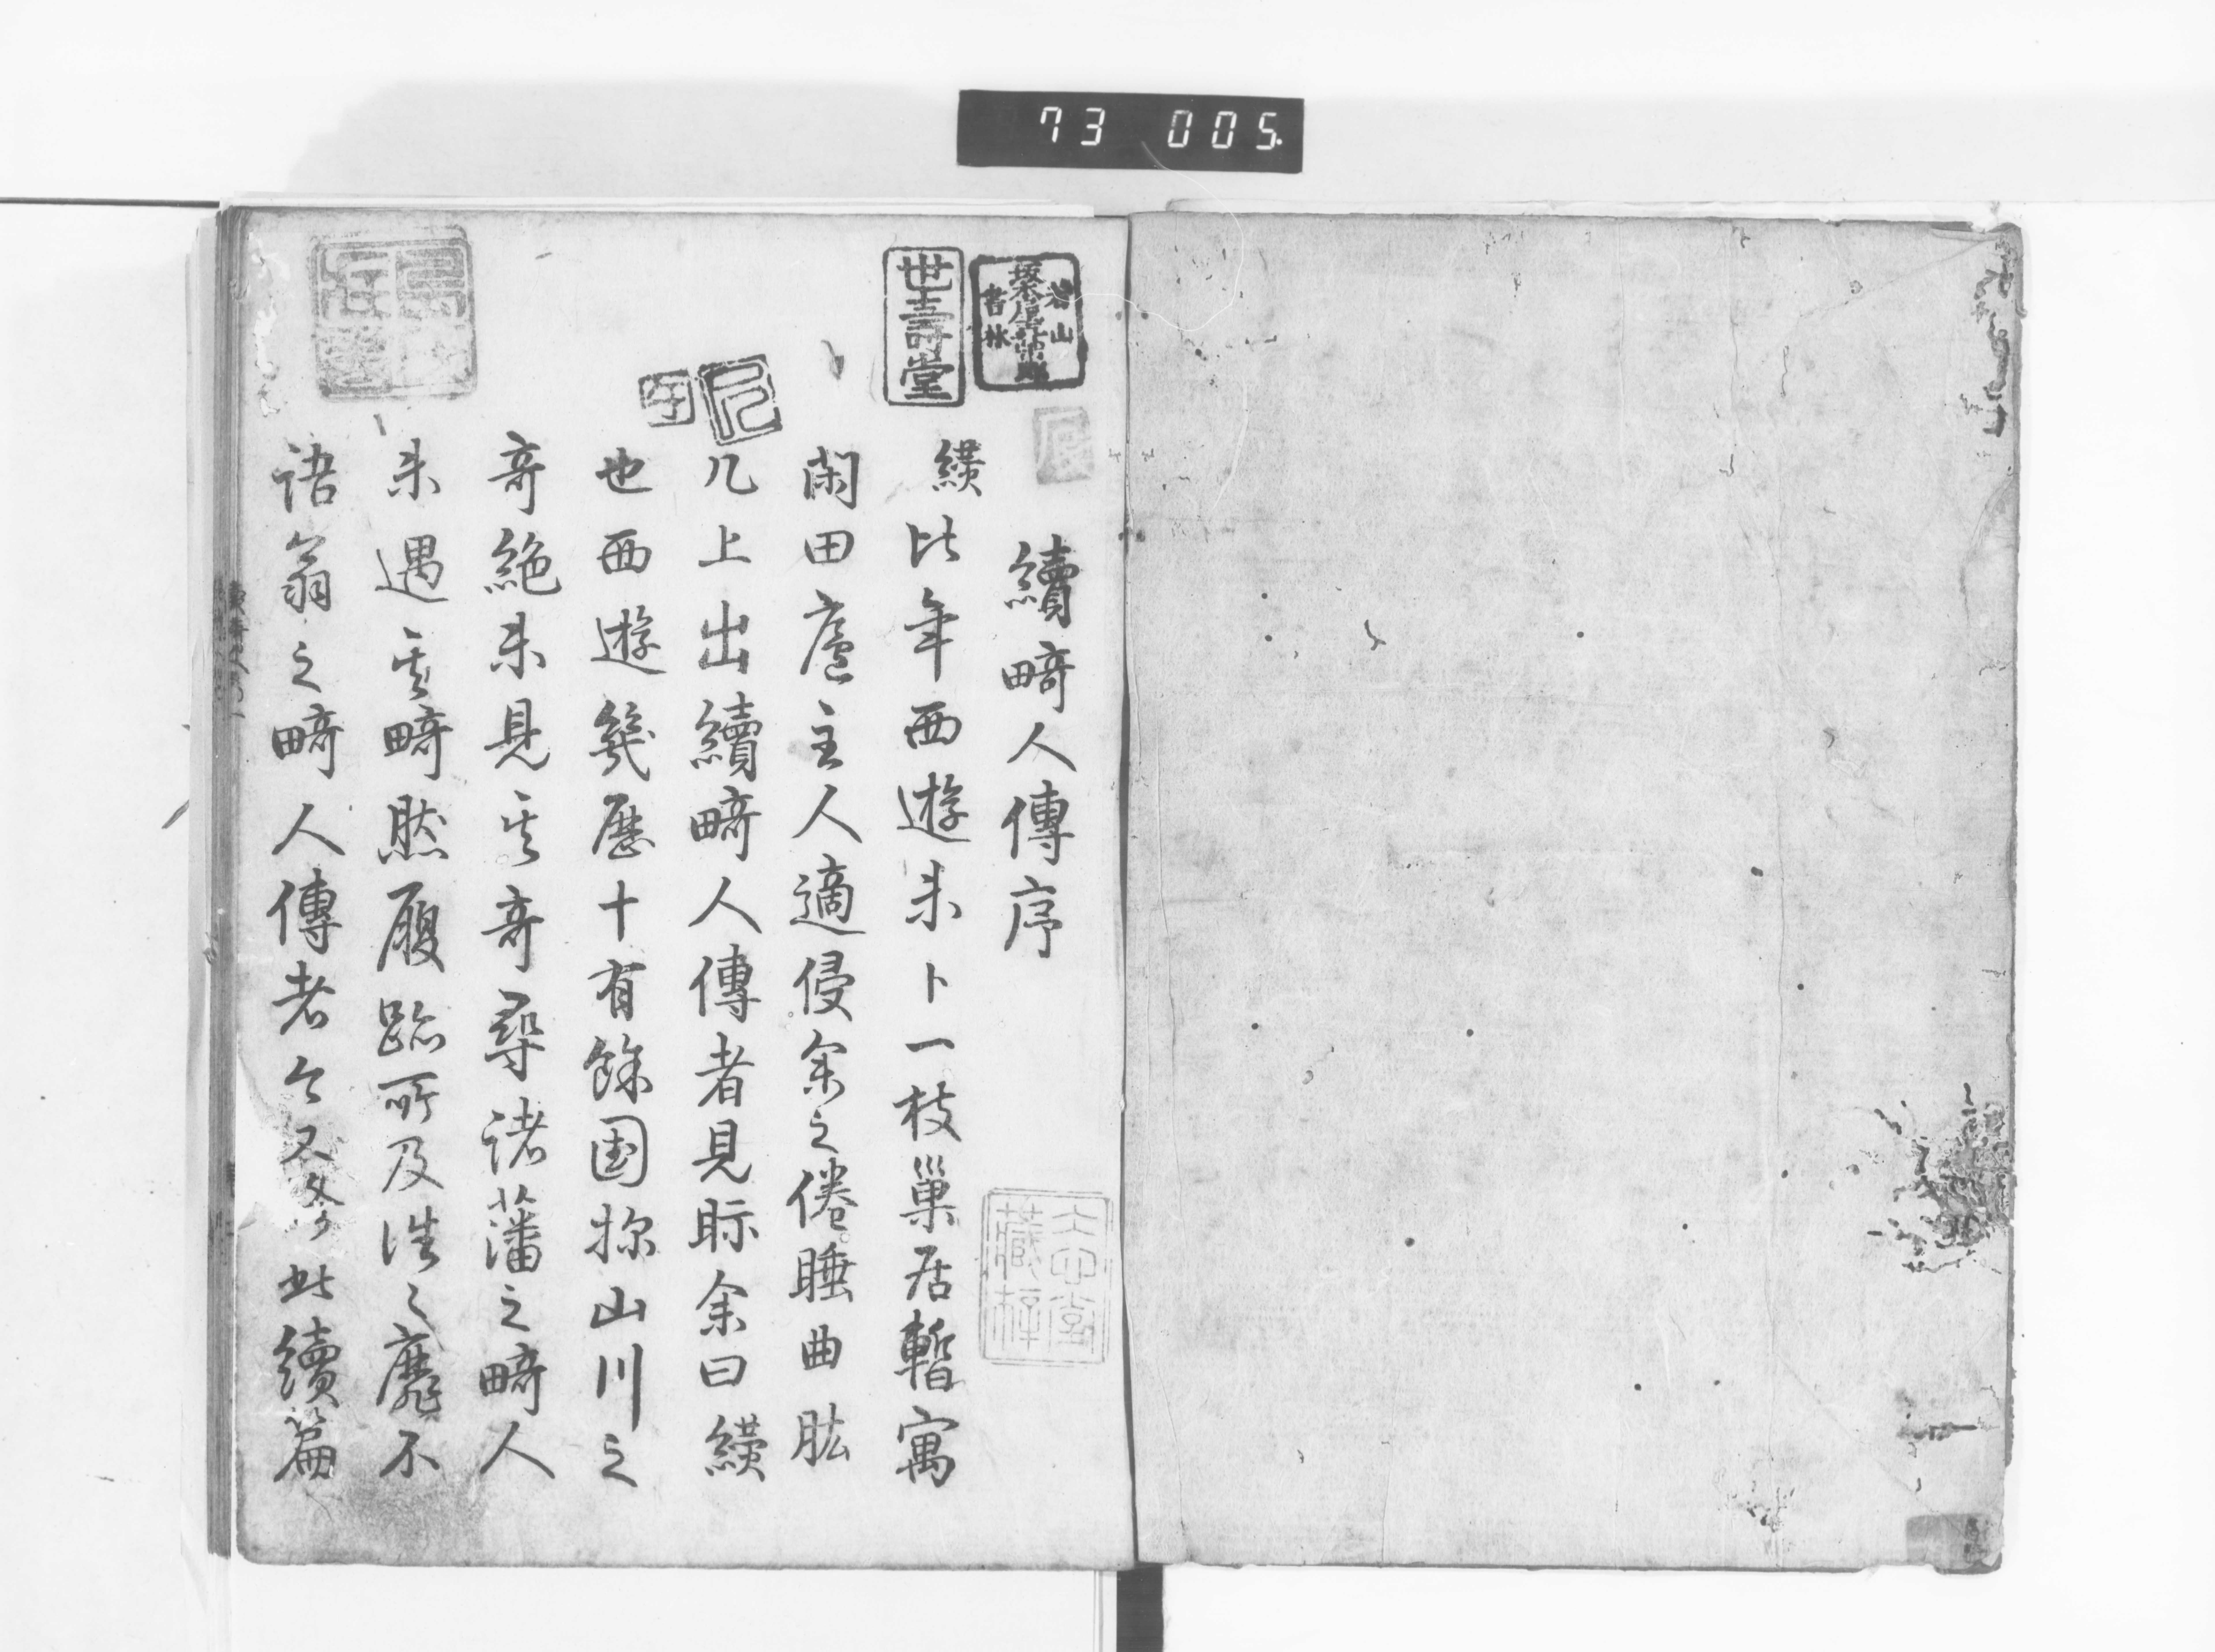 73 005.
若山
書林
世壽堂
續畸人傳序
纉比年西遊未卜一枝巢居暫寓
閑田廬主人適侵余之倦睡曲肱
几上出續畸人傳者見眎余曰纉
也西遊幾歷十有餘国探山川之
奇絶未見其奇尋諸藩之畸人
未遇其畸然履跡所及往々靡不
語翁之畸人傳者今又琴此續篇
藏梓